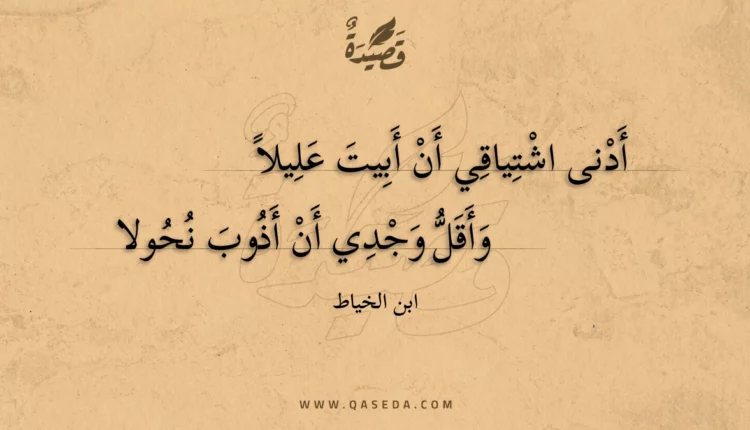 قَصِيدَةٌ
أَدْنى اشْتِياقِي أَنْ أَبِيتَ عَلِيلاً
وَأَقَلُّ وَجْدِي أَنْ أَذُوبَ نُحُولا
ابن الخياط
WWW.QASEDA.COM